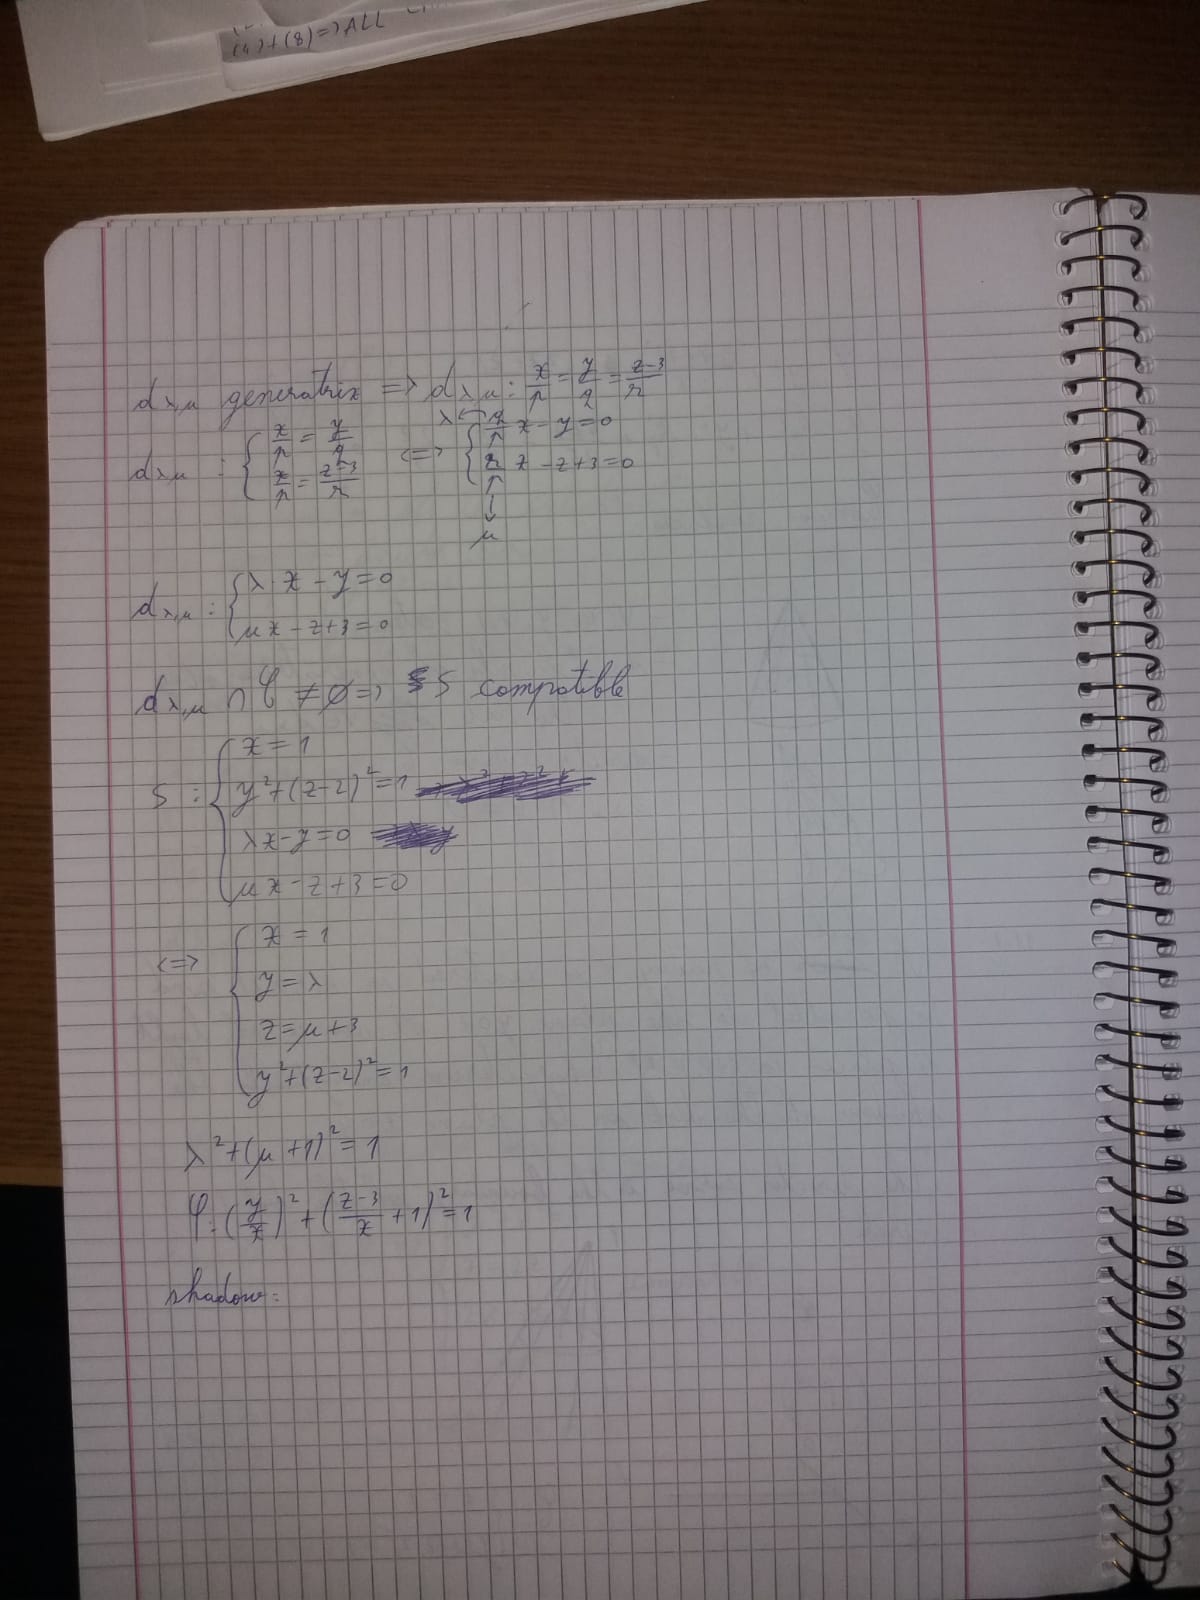 (4)+(8)=>ALL
dλ,μ generatrix => dλ,μ: x/p = y/q = (z-3)/r
dλ,μ : { x/p = y/q <=> { q/p x - y = 0
x/p = (z-3)/r r/p x - z + 3 = 0
λ
μ
dλ,μ : { λ x - y = 0
μx - z + 3 = 0
dλ,μ ∩ C ≠ ∅ => S compatible
S : { x = 1
y² + (z-2)² = 1
λx - y = 0
μx - z + 3 = 0
<=> { x = 1
y = λ
z = μ + 3
y² + (z-2)² = 1
λ² + (μ+1)² = 1
φ: (y/x)² + ((z-3)/x + 1)² = 1
shadow: